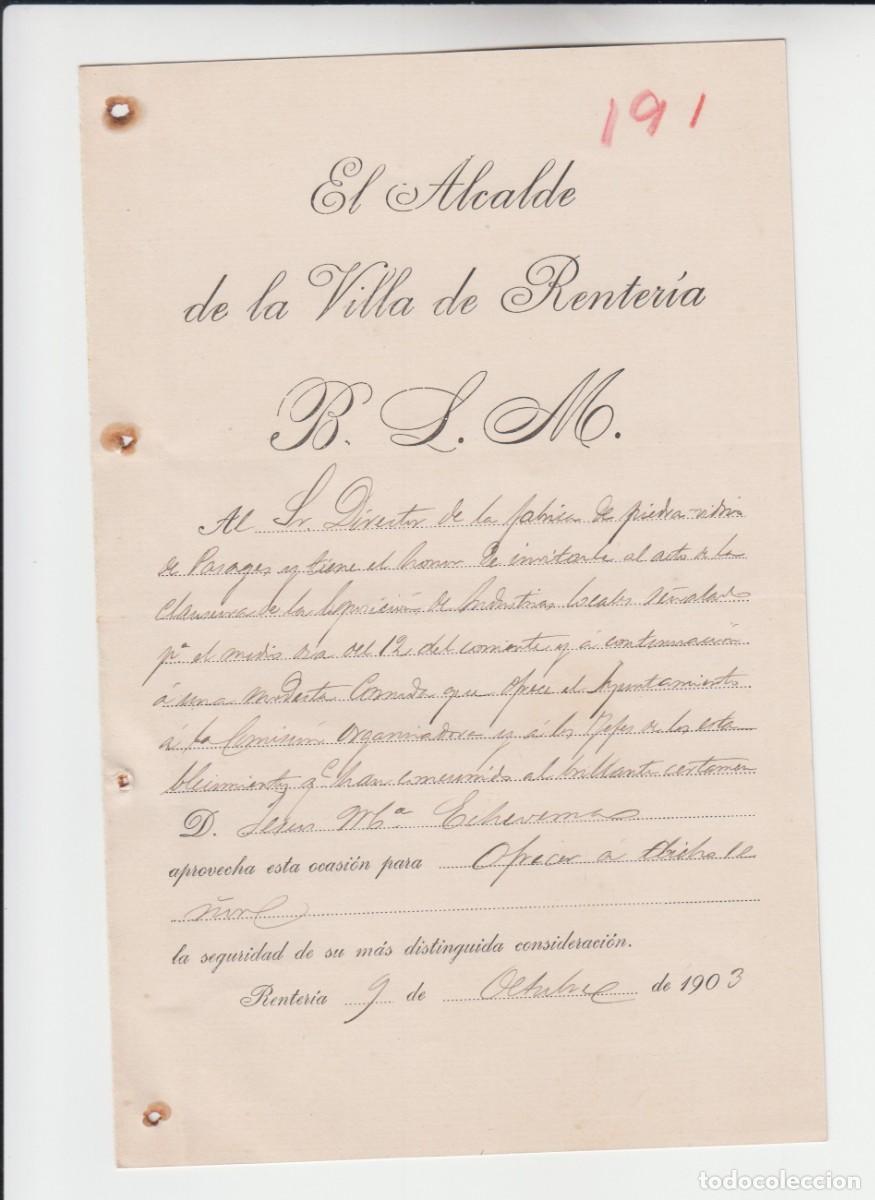 191
El Alcalde
de la Villa de Rentería
B. L. M.
Al Sr. Director de la fabrica de piedra-vidrio
de Pasages y tiene el honor de invitarle al acto de la
clausura de la Exposición de Industrias locales señalado
pª el medio dia del 12 del corriente y á continuación
á una modesta Comida que ofrece el Ayuntamiento
á la Comisión organizadora y á los Jefes de los esta
blecimientos q.e han concurrido al brillante certamen
D. Jesus Mª Echeverria
aprovecha esta ocasión para ofrecer á dicho se
ñor
la seguridad de su más distinguida consideración.
Rentería 9 de Octubre de 1903
todocoleccion